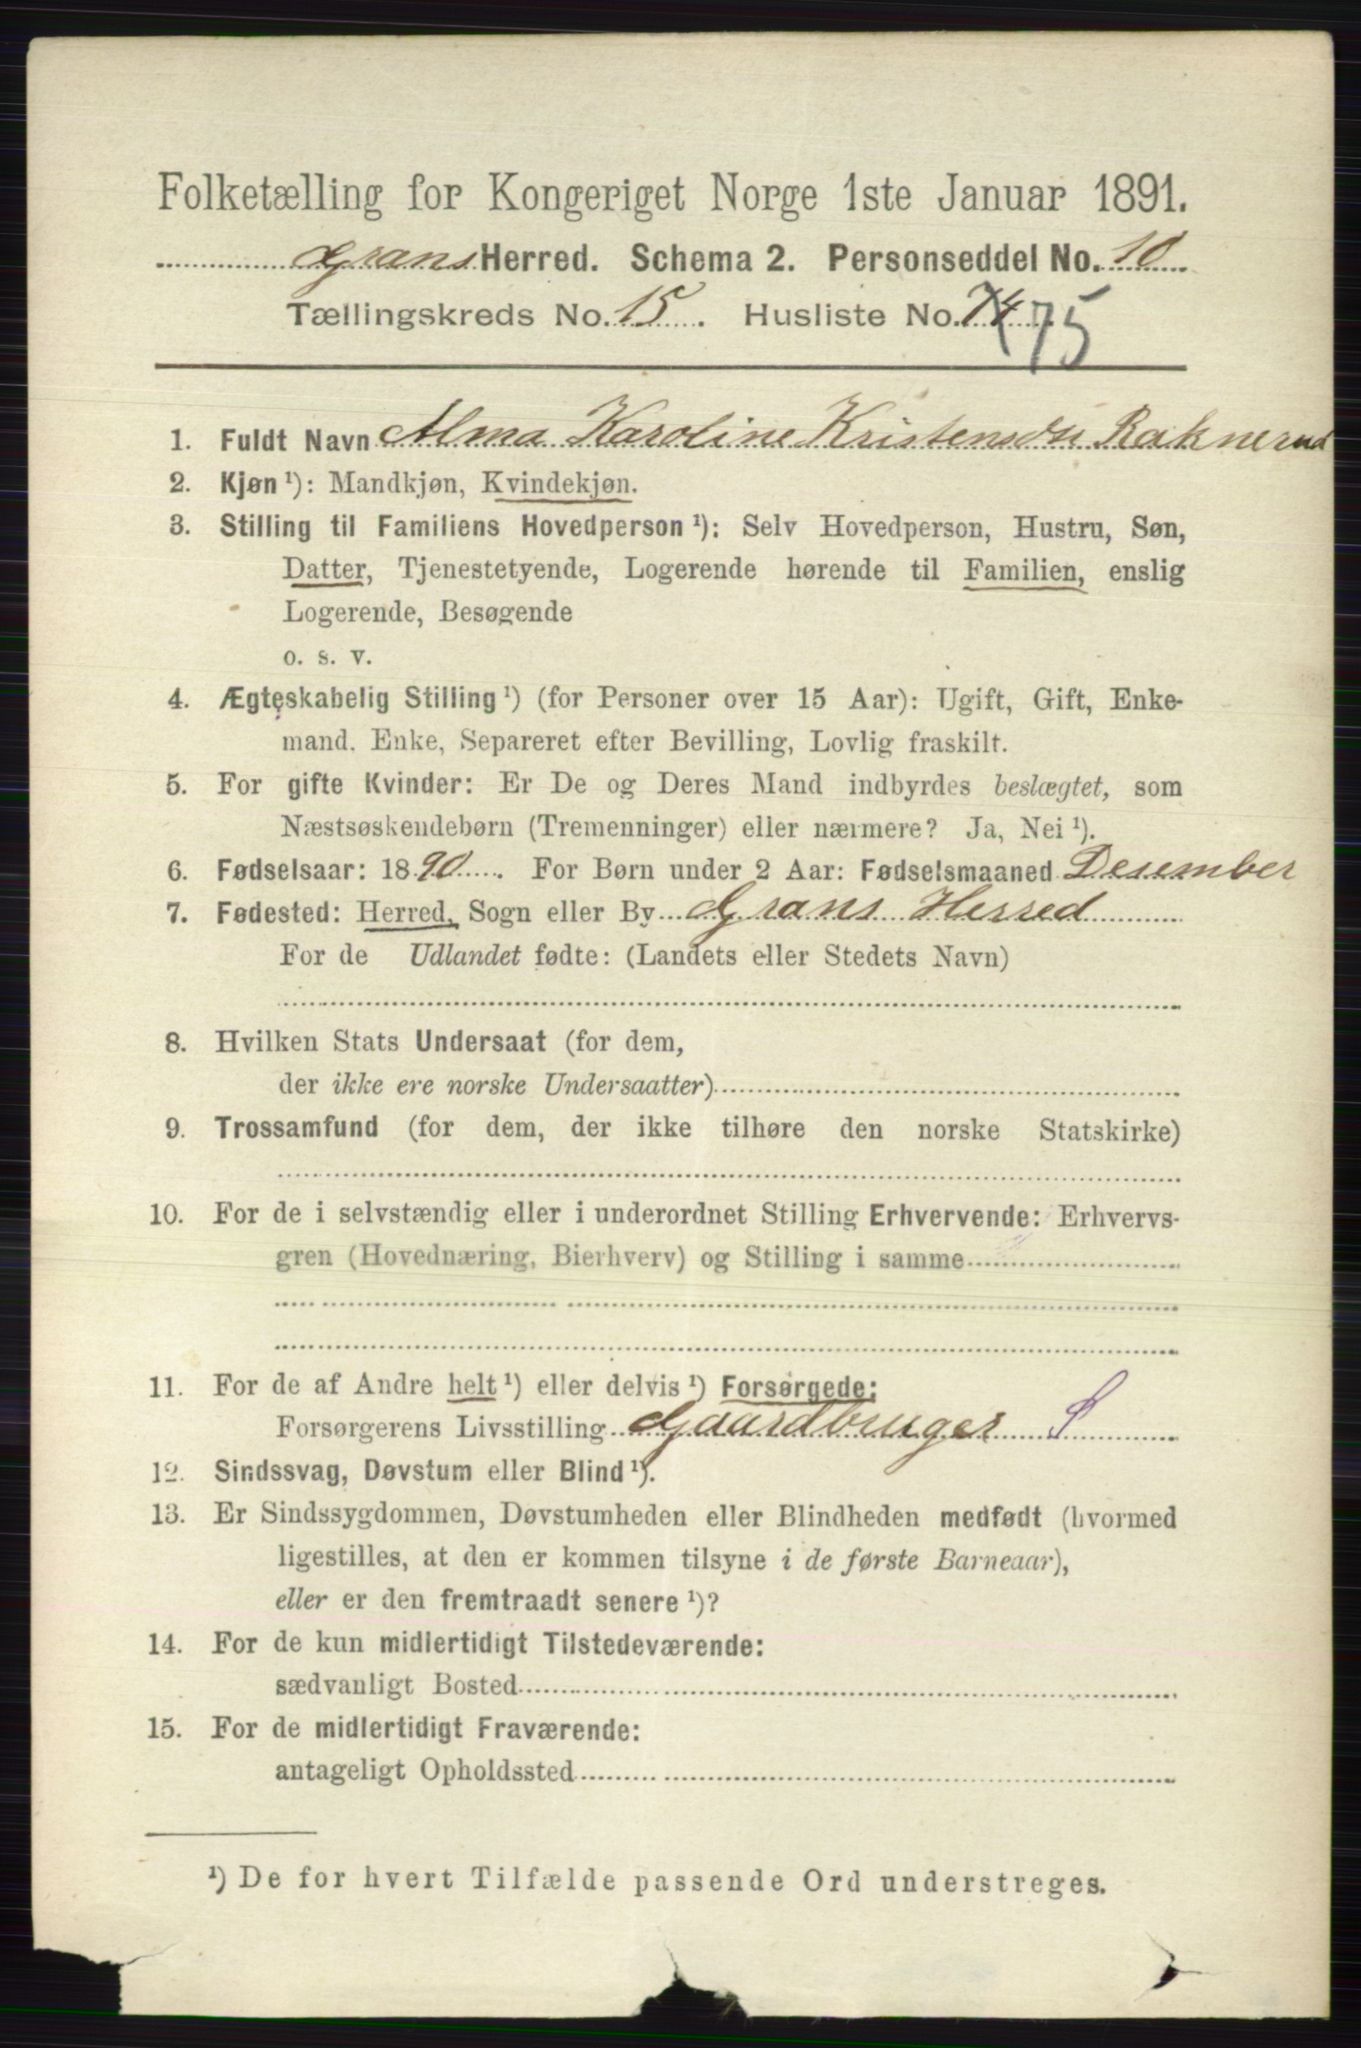 Folketælling for Kongeriget Norge 1ste Januar 1891.
Grans Herred. Schema 2. Personseddel No. 10
Tællingskreds No. 15. Husliste No. 74 75
1. Fuldt Navn Alma Karoline Kristensdn Raknerud
2. Kjøn ¹): Mandkjøn, Kvindekjøn.
3. Stilling til Familiens Hovedperson ¹): Selv Hovedperson, Hustru, Søn,
Datter, Tjenestetyende, Logerende hørende til Familien, enslig
Logerende, Besøgende
o. s. v.
4. Ægteskabelig Stilling ¹) (for Personer over 15 Aar): Ugift, Gift, Enke-
mand, Enke, Separeret efter Bevilling, Lovlig fraskilt.
5. For gifte Kvinder: Er De og Deres Mand indbyrdes beslægtet, som
Næstsøskendebørn (Tremenninger) eller nærmere? Ja, Nei ¹).
6. Fødselsaar: 1890. For Børn under 2 Aar: Fødselsmaaned Desember
7. Fødested: Herred, Sogn eller By Grans Herred
For de Udlandet fødte: (Landets eller Stedets Navn)
8. Hvilken Stats Undersaat (for dem,
der ikke ere norske Undersaatter)
9. Trossamfund (for dem, der ikke tilhøre den norske Statskirke)
10. For de i selvstændig eller i underordnet Stilling Erhvervende: Erhvervs-
gren (Hovednæring, Bierhverv) og Stilling i samme
11. For de af Andre helt ¹) eller delvis ¹) Forsørgede:
Forsørgerens Livsstilling Gaardbruger S
12. Sindssvag, Døvstum eller Blind ¹).
13. Er Sindssygdommen, Døvstumheden eller Blindheden medfødt (hvormed
ligestilles, at den er kommen tilsyne i de første Barneaar),
eller er den fremtraadt senere ¹)?
14. For de kun midlertidigt Tilstedeværende:
sædvanligt Bosted
15. For de midlertidigt Fraværende:
antageligt Opholdssted
¹) De for hvert Tilfælde passende Ord understreges.